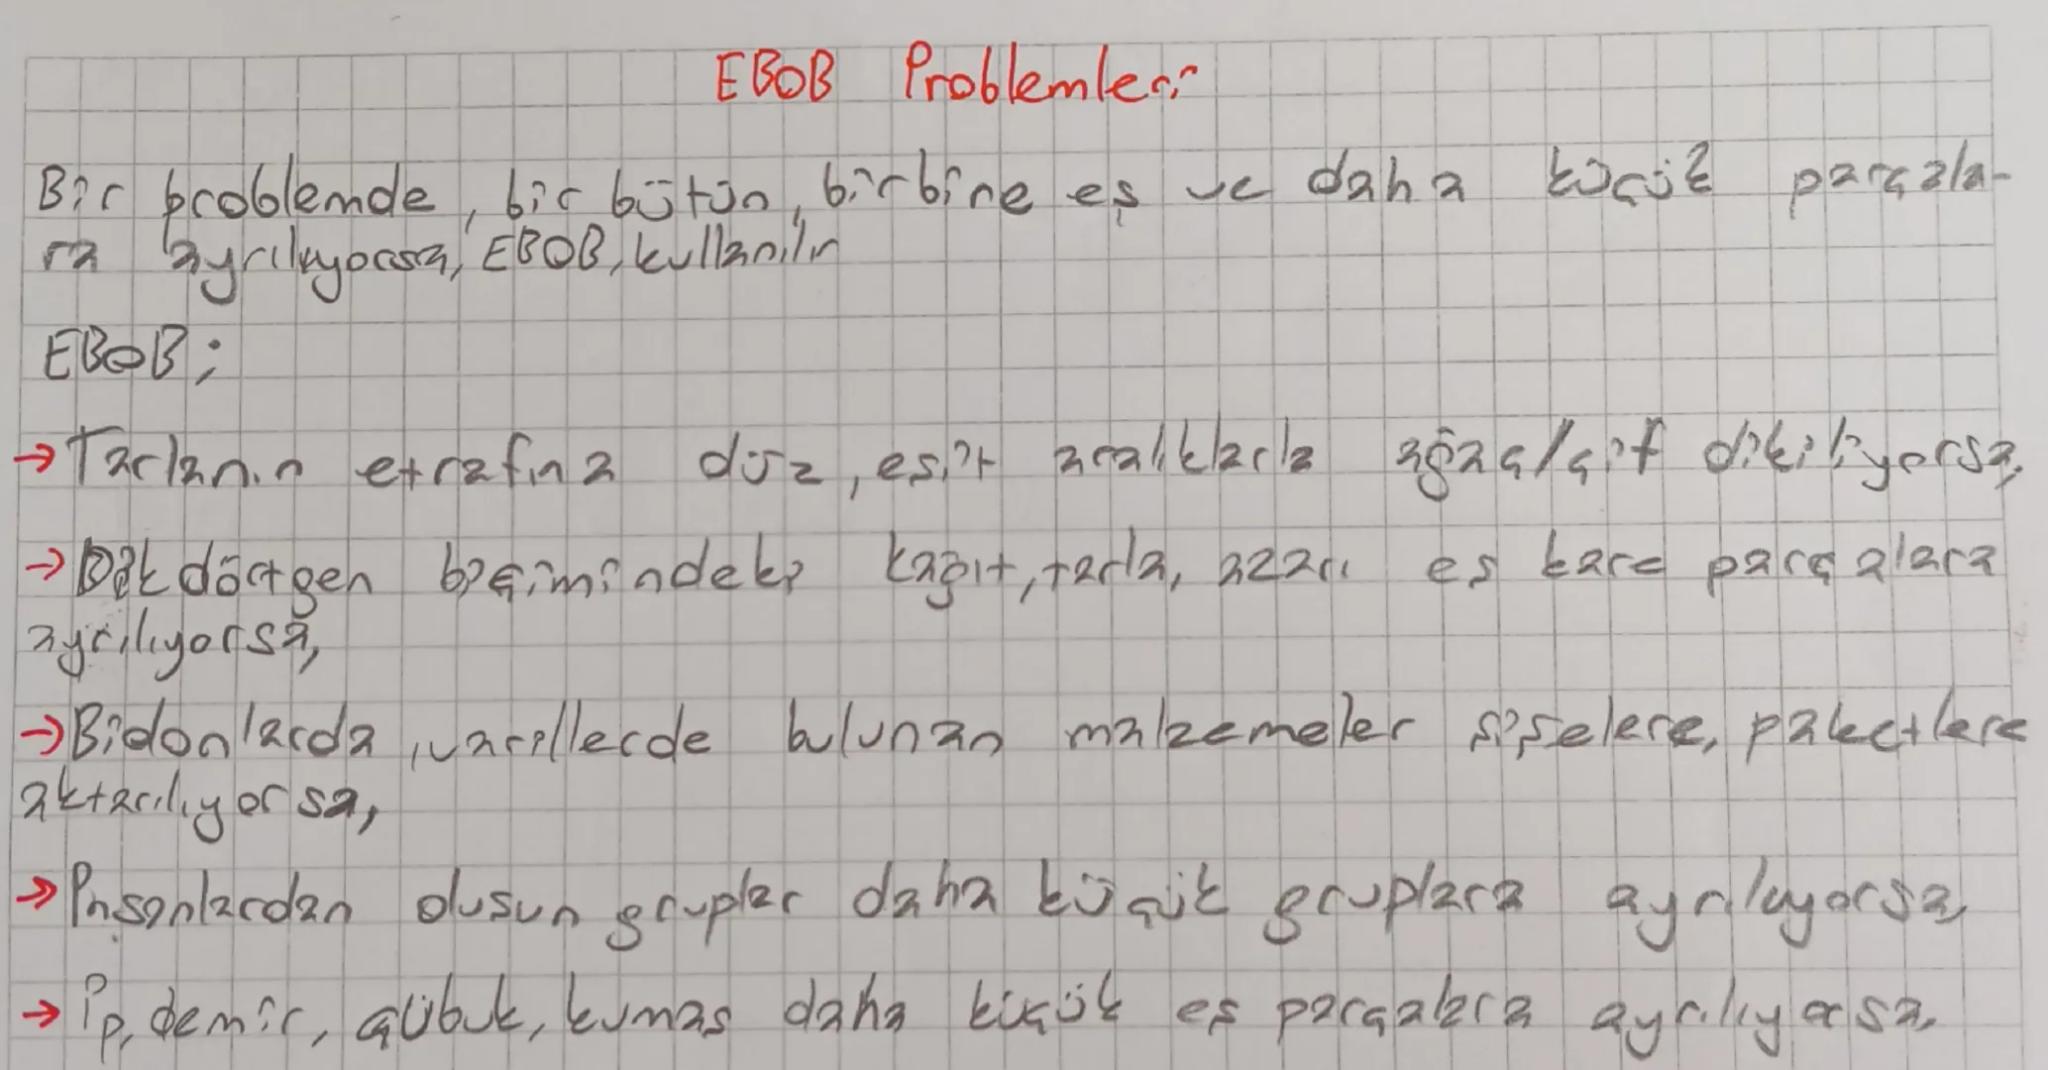 EBOB Problemleri
Bir problemde, bir bütün, birbine eş ve daha küçük parçala-
ra ayrılıyorsa, EBOB, kullanılır
EBOB;
→Tarlanın etrafına düz, eşit aralıklarla ağaç/çit dikiliyorsa,
→Dikdörtgen biçimindeki kağıt, tarla, arazi eş kare parçalara
ayrılıyorsa,
→Bidonlarda, varillerde bulunan malzemeler şişelere, paketlere
aktarılıyorsa,
→İnsanlardan olusun gruplar daha küçük gruplara ayrılıyorsa,
→İp, demir, çübuk, kumas daha küçük eş parçalara ayrılıyorsa,